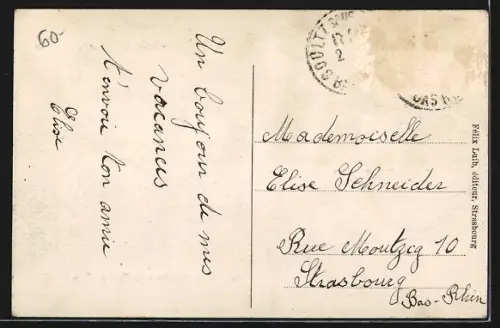 60
Un bonjour de mes
vacances
t'envoie ton amie
Elise
Mademoiselle
Elise Schneider
Rue Moutzig 10
Strasbourg
Bas-Rhin
Félix Luib, éditeur, Strasbourg